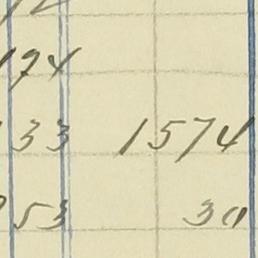 174
33 1574
53 30